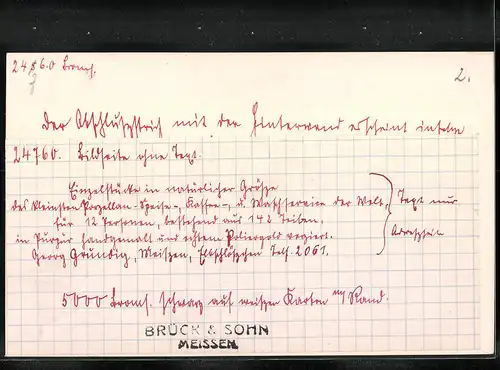 24760 Broms.
2.
Der Abschlußstrich mit der Hinterwand erscheint
24760. Bildseite ohne Text.
Einzelstücke in natürlicher Größe
des kleinsten Porzellan-Speise-, Kaffee-, u. Waschservice der Welt,
für 12 Personen, bestehend aus 142 Teilen,
in Purpur handgemalt und echtem Poliergold verziert.
Georg Grundig, Meißen, Telf. 2061.
Text nur
5000 Broms. schwarz auf weißen Karten m/ Rand.
BRÜCK & SOHN
MEISSEN.